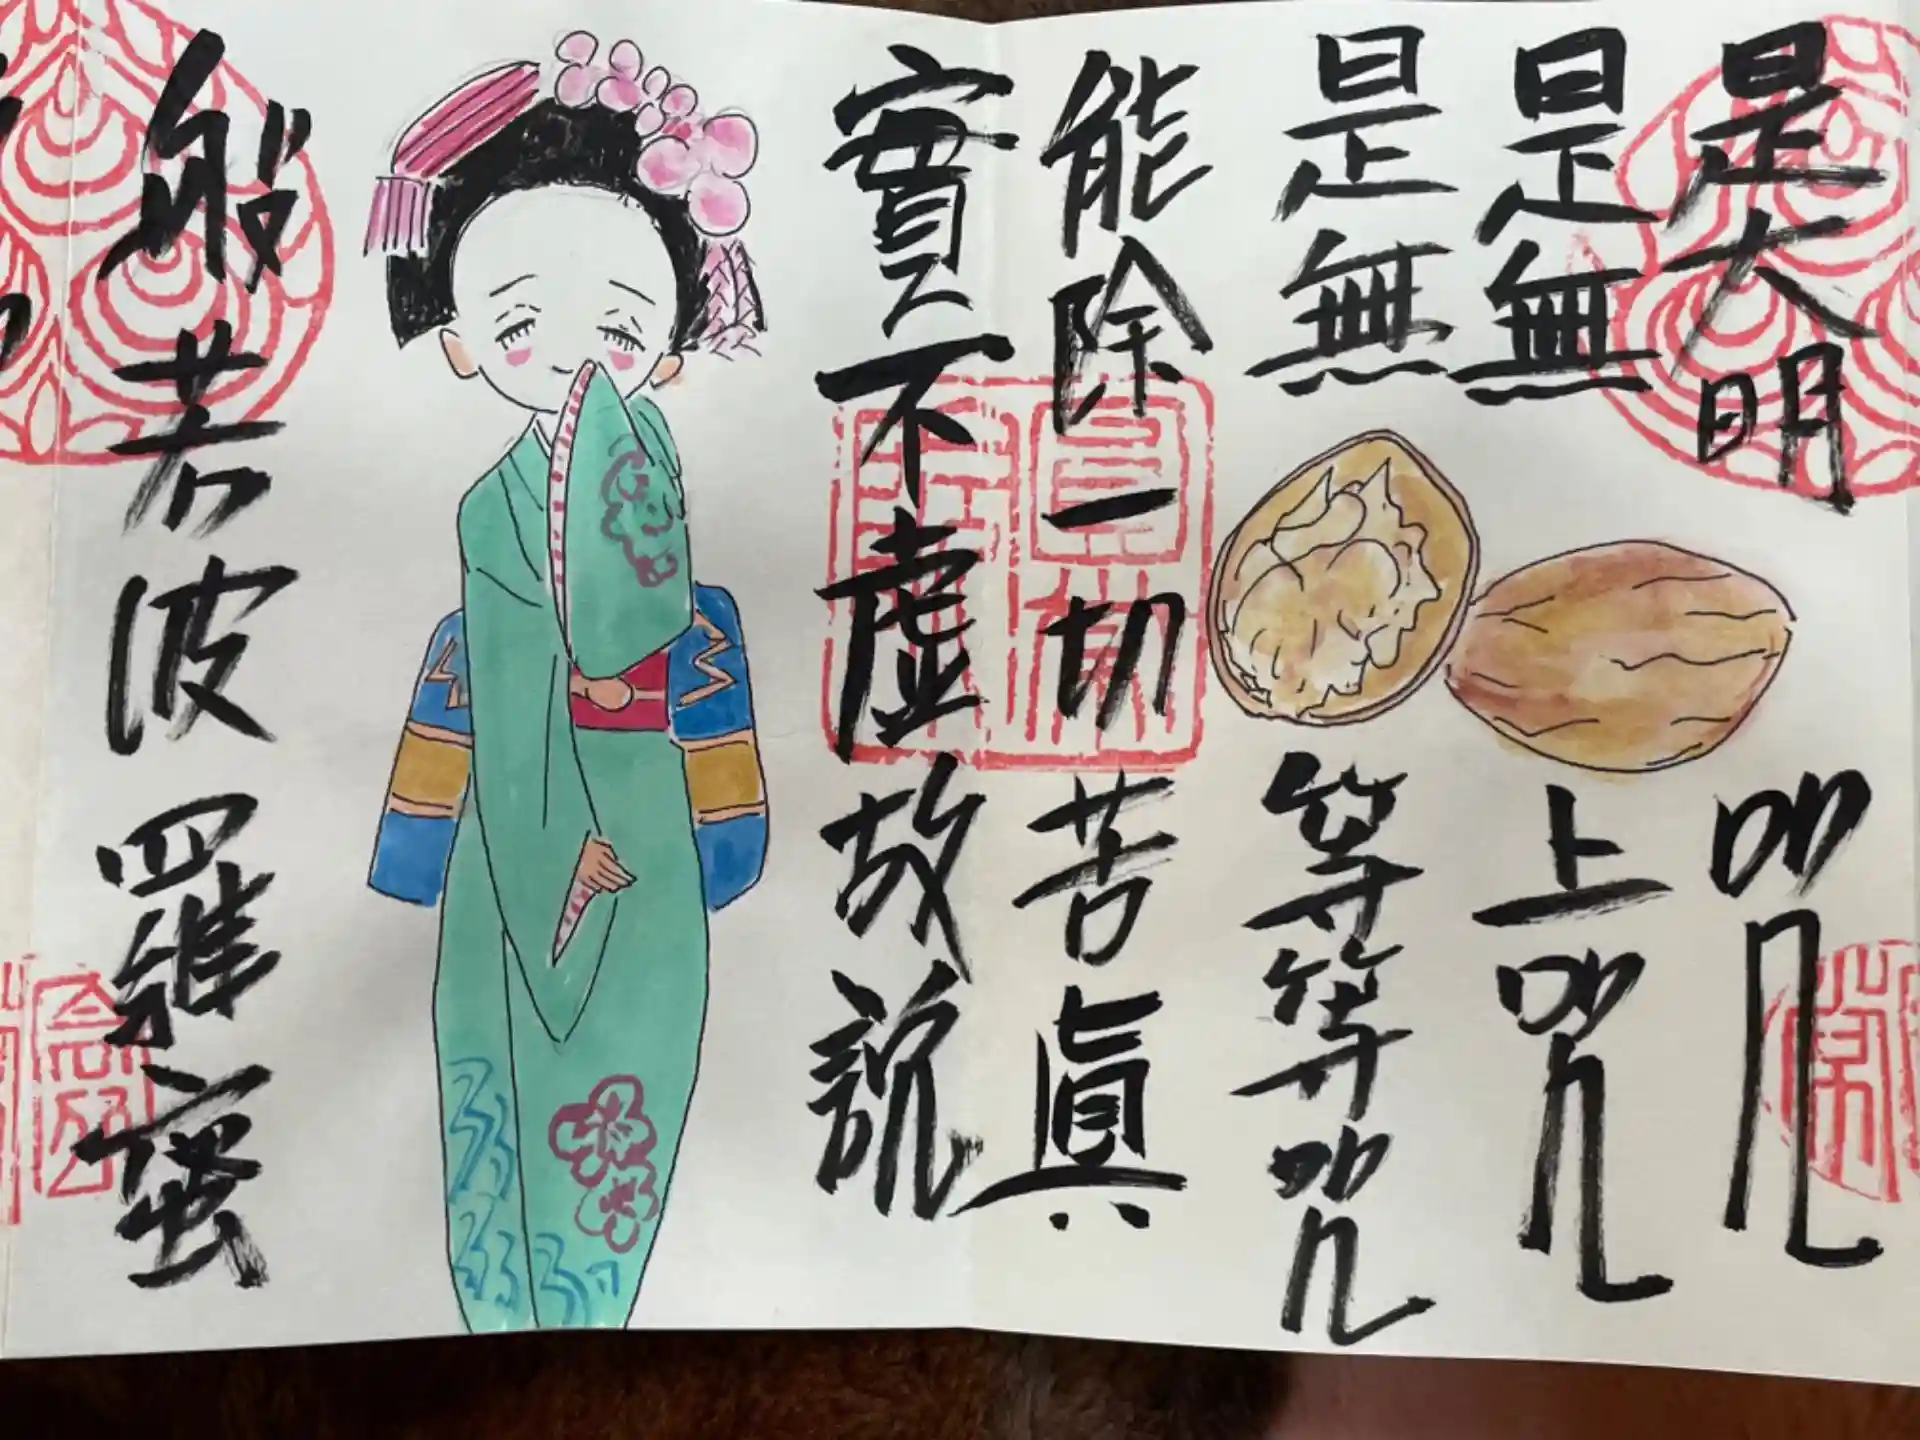 是大明呪
是無上呪
是無等等呪
能除一切苦眞
實不虚故説
般若波羅蜜